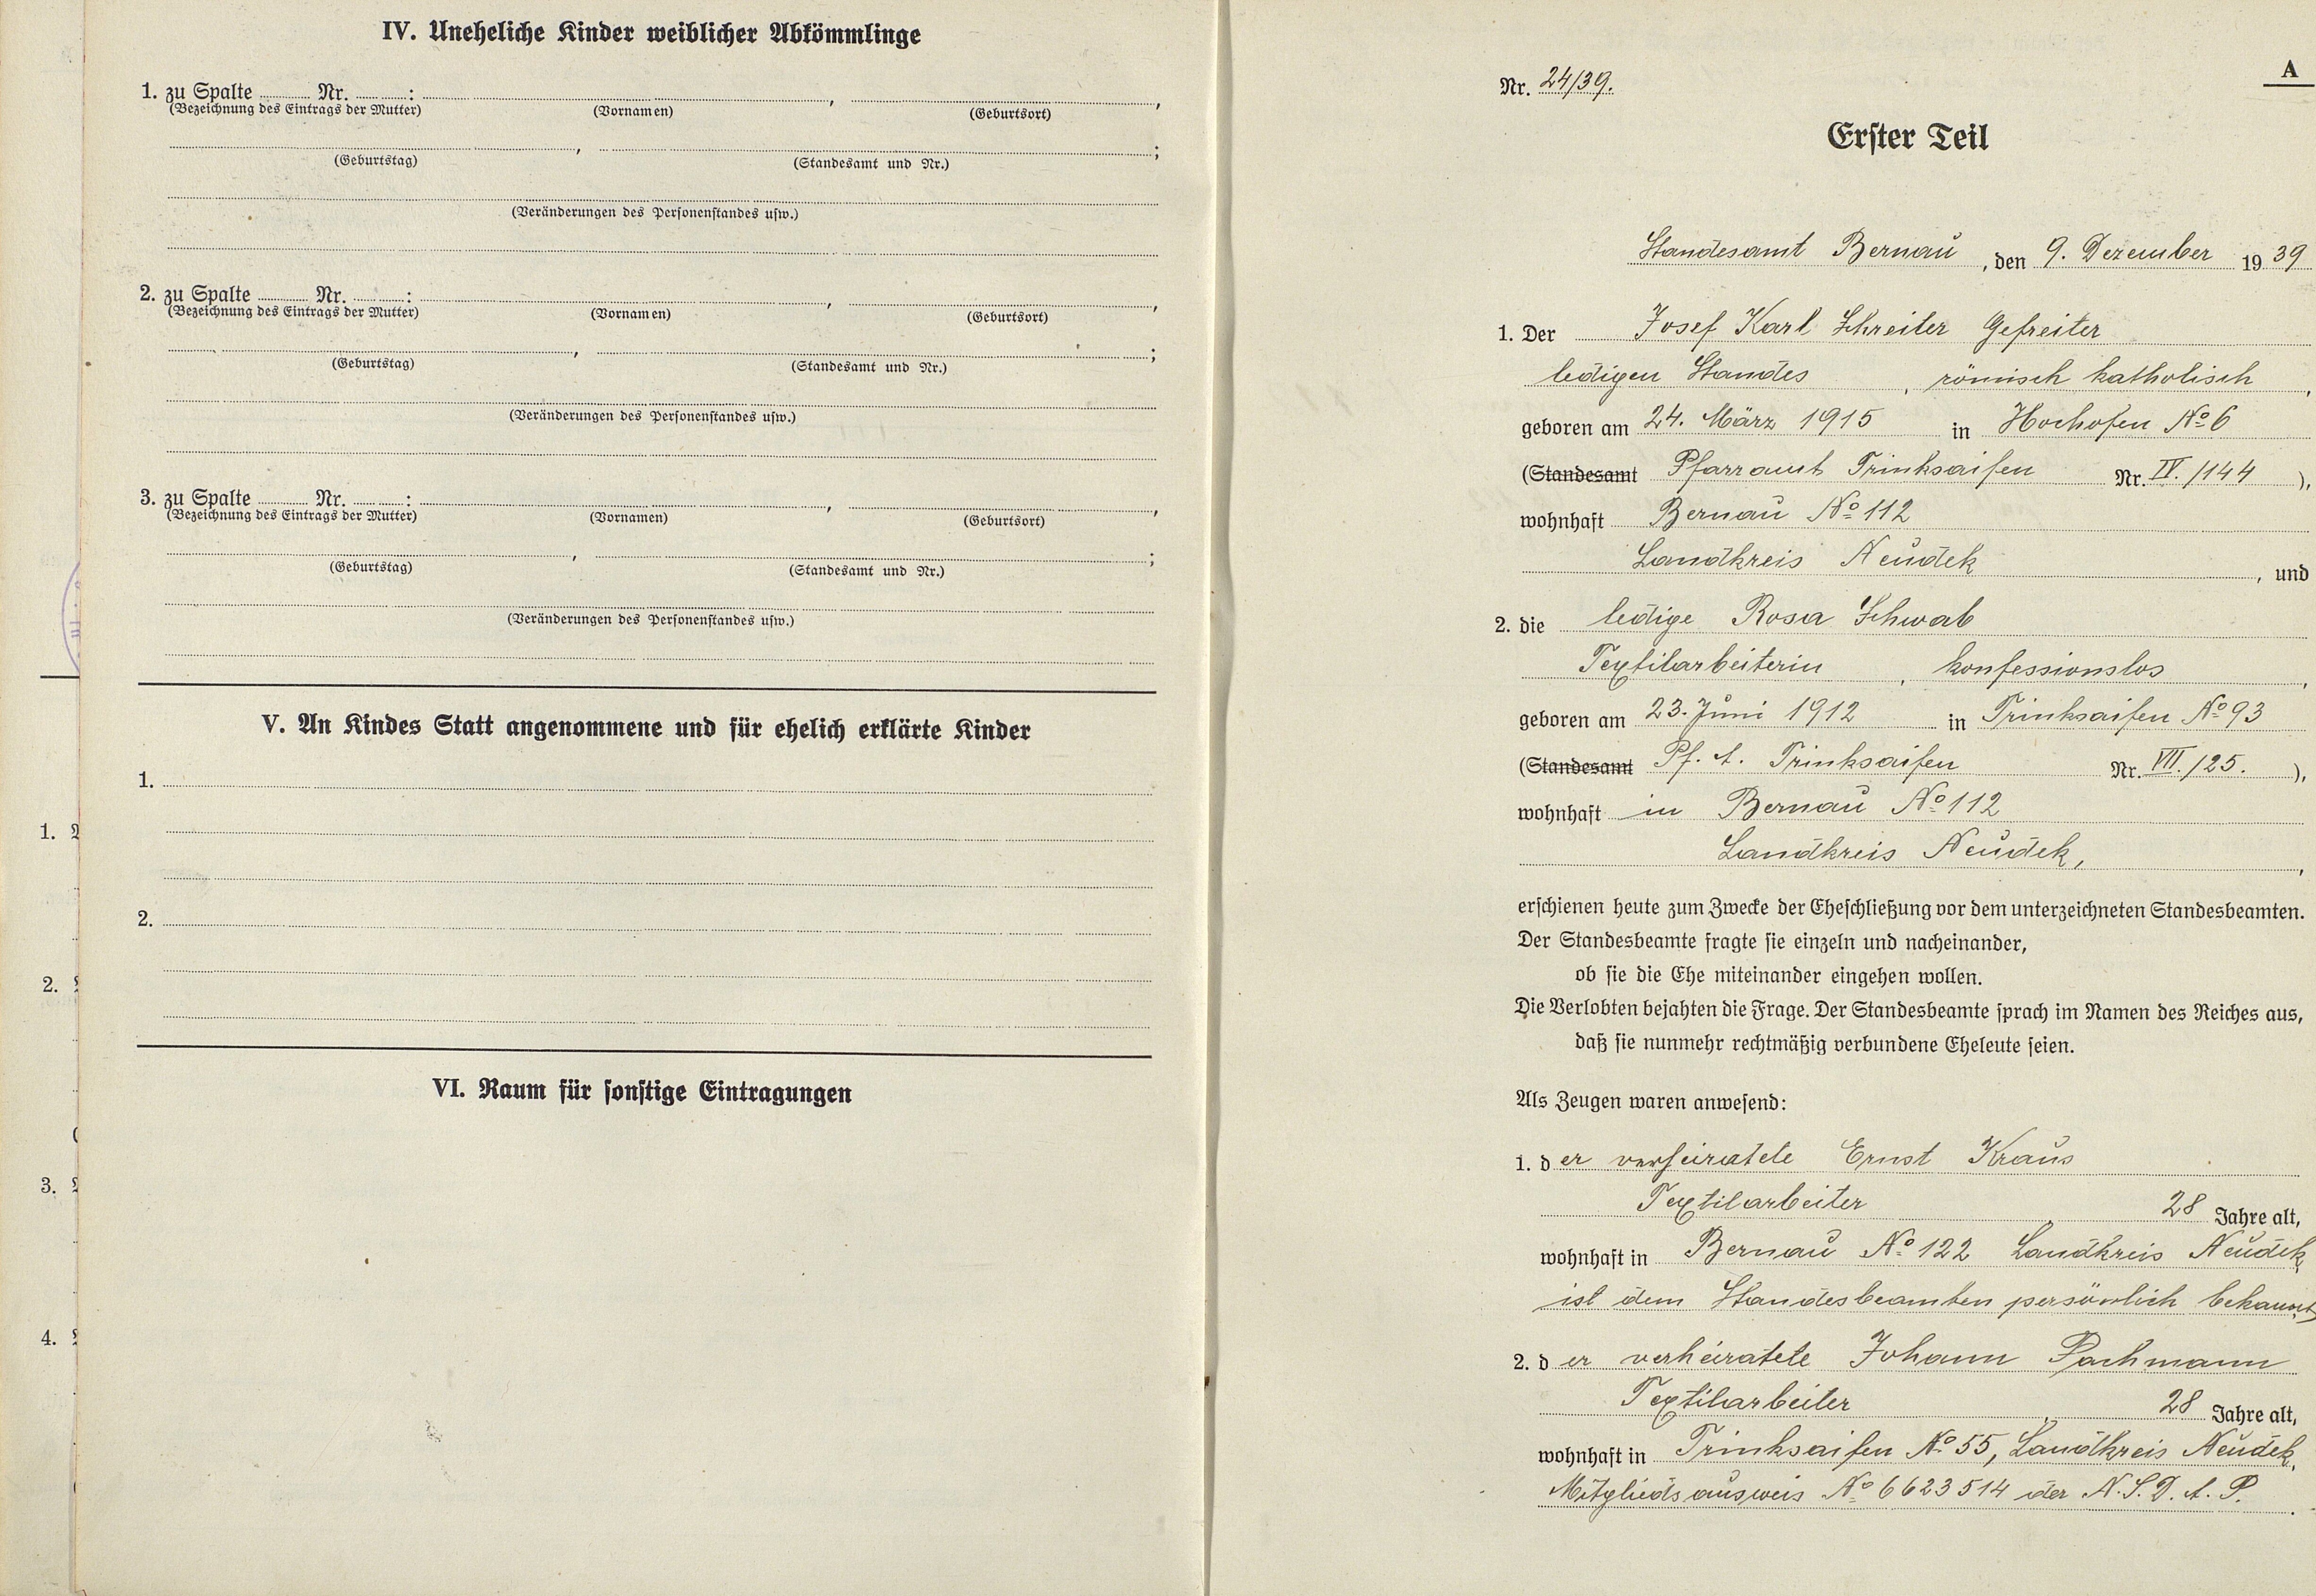 IV. Uneheliche Kinder weiblicher Abkömmlinge
1. zu Spalte Nr. : , ,
(Bezeichnung des Eintrags der Mutter) (Vornamen) (Geburtsort)
, ;
(Geburtstag) (Standesamt und Nr.)
(Veränderungen des Personenstandes usw.)
2. zu Spalte Nr. : , ,
(Bezeichnung des Eintrags der Mutter) (Vornamen) (Geburtsort)
, ;
(Geburtstag) (Standesamt und Nr.)
(Veränderungen des Personenstandes usw.)
3. zu Spalte Nr. : , ,
(Bezeichnung des Eintrags der Mutter) (Vornamen) (Geburtsort)
, ;
(Geburtstag) (Standesamt und Nr.)
(Veränderungen des Personenstandes usw.)
V. An Kindes Statt angenommene und für ehelich erklärte Kinder
1.
2.
VI. Raum für sonstige Eintragungen
1.
2.
3.
4.
A
Nr. 24/39.
Erster Teil
Standesamt Bernau, den 9. Dezember 1939
1. Der Josef Karl Schreiter Gefreiter
ledigen Standes, römisch katholisch,
geboren am 24. März 1915 in Hochofen No 6
(Standesamt Pfarramt Trinksaifen Nr. IV./144),
wohnhaft Bernau No 112
Landkreis Neudek, und
2. die ledige Rosa Schwab
Textilarbeiterin, konfessionslos,
geboren am 23. Juni 1912 in Trinksaifen No 93
(Standesamt Pf. A. Trinksaifen Nr. VII./25.),
wohnhaft in Bernau No 112
Landkreis Neudek,,
erschienen heute zum Zwecke der Eheschließung vor dem unterzeichneten Standesbeamten.
Der Standesbeamte fragte sie einzeln und nacheinander,
ob sie die Ehe miteinander eingehen wollen.
Die Verlobten bejahten die Frage. Der Standesbeamte sprach im Namen des Reiches aus,
daß sie nunmehr rechtmäßig verbundene Eheleute seien.
Als Zeugen waren anwesend:
1. der verheiratete Ernst Kraus
Textilarbeiter 28 Jahre alt,
wohnhaft in Bernau No 122 Landkreis Neudek,
ist dem Standesbeamten persönlich bekannt,
2. der verheiratete Johann Pachmann
Textilarbeiter 28 Jahre alt,
wohnhaft in Trinksaifen No 55, Landkreis Neudek,
Mitgliedsausweis No 6623514 der N.S.D.A.P.